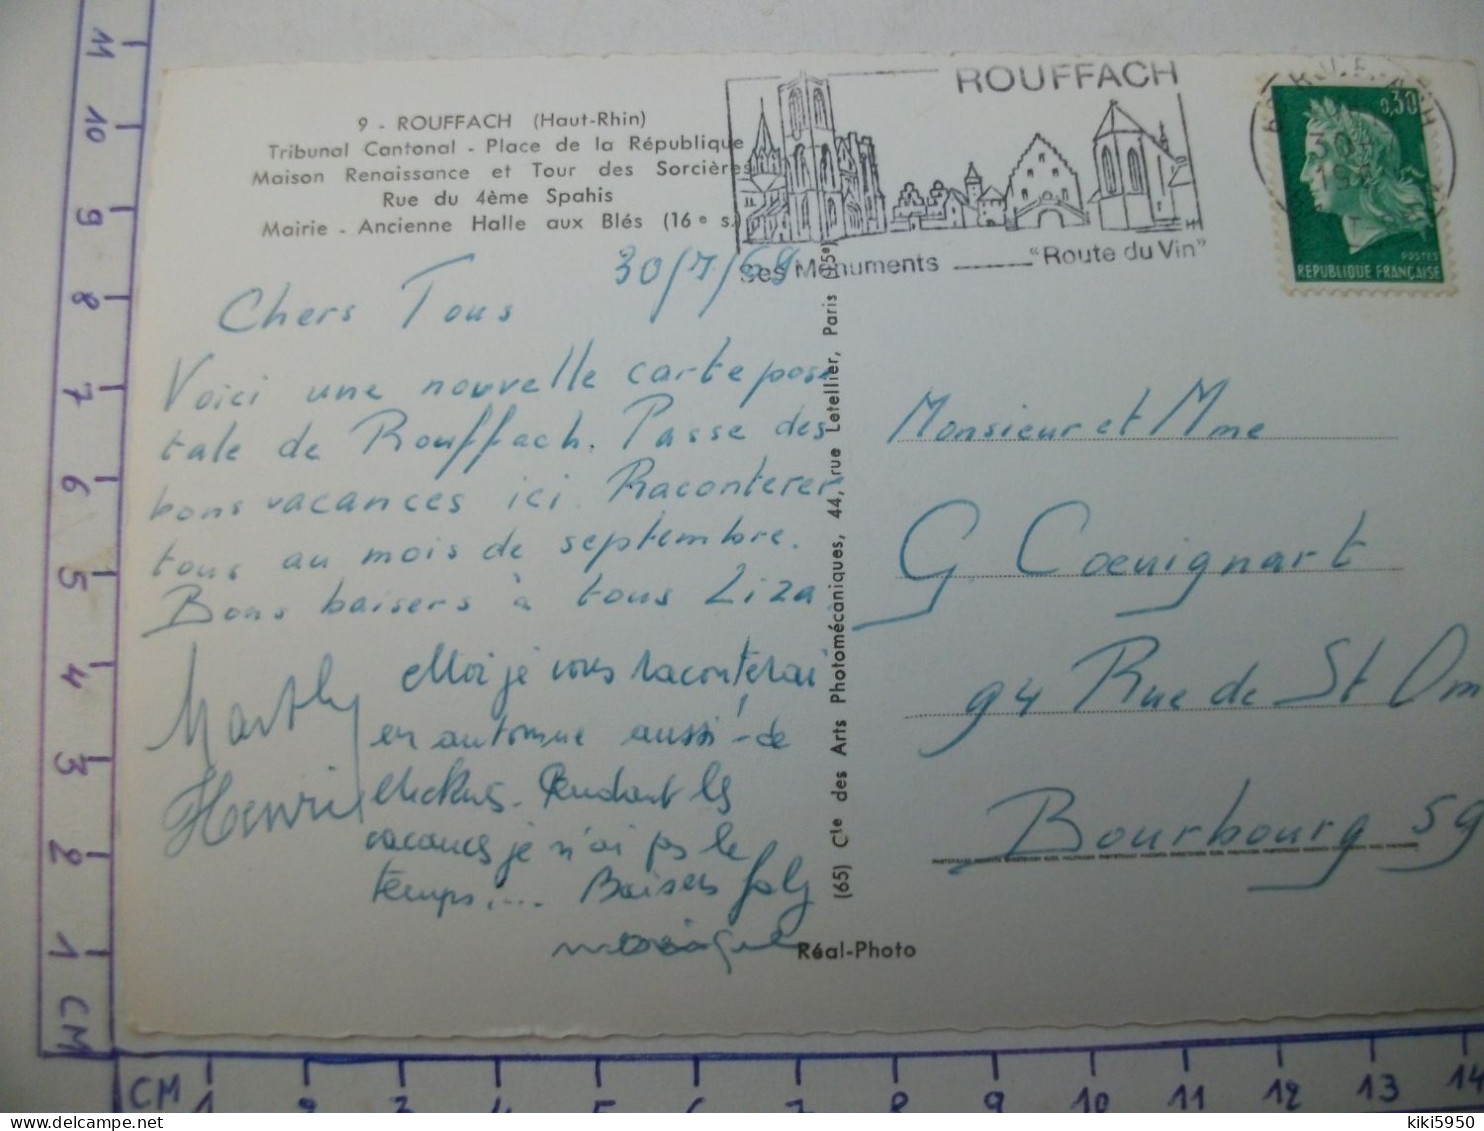 9 - ROUFFACH (Haut-Rhin)
Tribunal Cantonal - Place de la République
Maison Renaissance et Tour des Sorcières
Rue du 4ème Spahis
Mairie - Ancienne Halle aux Blés (16e s.)
ROUFFACH
Ses Monuments "Route du Vin"
0,30
POSTES
REPUBLIQUE FRANÇAISE
30/7/69
Chers Tous
Voici une nouvelle carte pos
tale de Rouffach. Passe des
bons vacances ici. Raconterer
tous au mois de septembre.
Bons baisers à tous Liza
Marthy
Henri
Moi je vous raconterai
en automne aussi - de
Pendant les
vacances je n'ai ps le
temps.... Baisers
(65) Cte des Arts Photomécaniques, 44, rue Letellier, Paris (15e)
Réal-Photo
Monsieur et Mme
G Cœuignart
94 Rue de St Om
Bourbourg 59
11
10
9
8
7
6
5
4
3
2
1
CM
CM 1 2 3 4 5 6 7 8 9 10 11 12 13 14
kiki5950